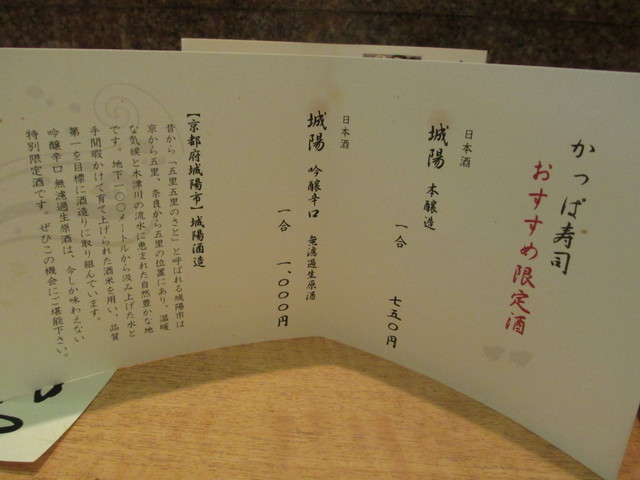 かっぱ寿司
おすすめ限定酒
日本酒
城陽 本醸造
一合 七五〇円
日本酒
城陽 吟醸辛口 無濾過生原酒
一合 一、〇〇〇円
【京都府城陽市】城陽酒造
昔から「五里五里のさと」と呼ばれる城陽市は
京から五里、奈良から五里の位置にあり、温暖
な気候と木津川の流水に恵まれた自然豊かな地
です。地下一〇〇メートルから汲み上げた水と
手間暇かけて育て上げられた酒米を用い、品質
第一を目標に酒造りに取り組んでいます。
吟醸辛口 無濾過生原酒は、今しか味わえない
特別限定酒です。ぜひこの機会にご堪能下さい。